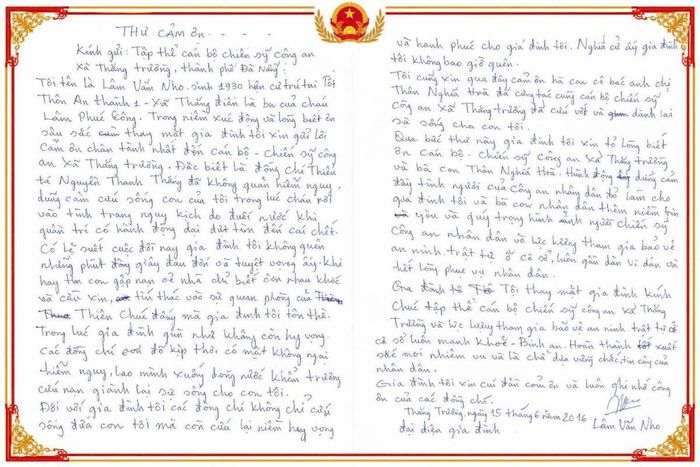 THƯ CẢM ƠN
Kính gửi: Tập thể cán bộ chiến sỹ công an
Xã Thăng Trường, thành phố Đà Nẵng:
Tôi tên là Lâm Văn Nho sinh 1930 hiện cư trú tại Tổ 1
Thôn An Thành 1 - Xã Thăng Điền là ba của cháu
Lâm Phúc Công. Trong niềm xúc động và lòng biết ơn
sâu sắc thay mặt gia đình tôi xin gửi lời
cảm ơn chân thành nhất đến cán bộ - chiến sỹ công
an Xã Thăng Trường. Đặc biệt là đồng chí Thiếu
tá Nguyễn Thanh Thắng đã không quản hiểm nguy,
dũng cảm cứu sống con của tôi trong lúc cháu rơi
vào tình trạng nguy kịch do đuối nước khi
quẫn trí có hành động dại dột tìm đến cái chết.
Có lẽ suốt cuộc đời này gia đình tôi không quên
những phút giây đau đớn và tuyệt vọng ấy. Khi
hay tin con gặp nạn ở nhà chỉ biết ôm nhau khóc
và cầu xin, tín thác vào sự quan phòng của
Thiên Chúa đấng mà gia đình tôi tôn thờ.
Trong lúc gia đình gần như không còn hy vọng
các đồng chí đó kịp thời có mặt không ngại
hiểm nguy, lao mình xuống dòng nước khẩn trương
cứu nạn giành lại sự sống cho con tôi.
Đối với gia đình tôi các đồng chí không chỉ cứu
sống đứa con tôi mà còn cứu lại niềm hy vọng
và hạnh phúc cho gia đình tôi. Nghĩa cử ấy gia đình
tôi không bao giờ quên.
Tôi cũng xin qua đây cảm ơn bà con cô bác anh chị
Thôn Nghĩa Hoà đã cùng tác cùng cán bộ chiến sỹ
công an xã Thăng Trường đã cứu vớt và giành lại
sự sống cho con tôi.
Qua bức thư này gia đình tôi xin tỏ lòng biết
ơn cán bộ - chiến sỹ công an xã Thăng Trường
và bà con Thôn Nghĩa Hoà. Hành động dũng cảm
đầy tình người của Công an nhân dân đã làm cho
gia đình tôi và bà con nhân dân thêm niềm tin
yêu và quý trọng hình ảnh người chiến sỹ
Công an nhân dân và lực lượng tham gia bảo vệ
an ninh trật tự ở cơ sở, luôn gần dân vì dân và
hết lòng phục vụ nhân dân.
Gia đình tôi Tôi thay mặt gia đình kính
Chúc tập thể cán bộ chiến sỹ công an xã Thăng
Trường và lực lượng tham gia bảo vệ an ninh trật tự ở
cơ sở luôn mạnh khoẻ - Bình an. Hoàn thành xuất
sắc mọi nhiệm vụ và là chỗ dựa vững chắc, tin cậy của
nhân dân.
Gia đình tôi xin cúi đầu cảm ơn và luôn ghi nhớ công
ơn của các đồng chí.
Thăng Trường, ngày 15 tháng 6 năm 2016
đại diện gia đình
Lâm Văn Nho